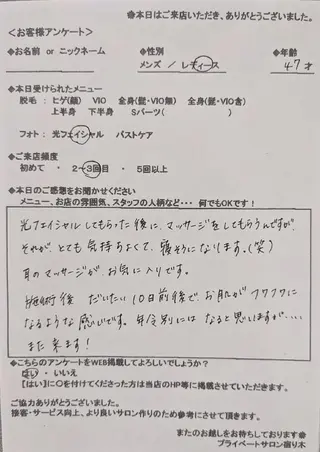 ☻本日はご来店いただき、ありがとうございました。
＜お客様アンケート＞
☻お名前 or ニックネーム ☻性別 ☻年齢
メンズ / レディース 47才
☻本日受けられたメニュー
脱毛：ヒゲ(顔) VIO 全身(髭・VIO無) 全身(髭・VIO含)
上半身 下半身 Sパーツ( )
フォト：光フェイシャル バストケア
☻ご来店頻度
初めて ・ 2～3回目 ・ 5回以上
☻本日のご感想をお聞かせください
メニュー、お店の雰囲気、スタッフの人柄など・・・何でもOKです！
光フェイシャルしてもらった後に、マッサージをしてもらうんですが、
それが、とても気持ちよくて、寝そうになります。(笑)
耳のマッサージがお気に入りです。
施術後 だいたい10日前後で、お肌がフワフワに
なるような感じです。年令別にはなると思いますが....
また来ます！
☻こちらのアンケートをWEB掲載してよろしいでしょうか？
はい ・ いいえ
【はい】に○を付けてくださった方は当店のHP等に掲載させていただきます。
ご協力ありがとうございました。
接客・サービス向上、より良いサロン作りのため参考にさせて頂きます。
またのお越しをお待ちしております☻
プライベートサロン宿り木